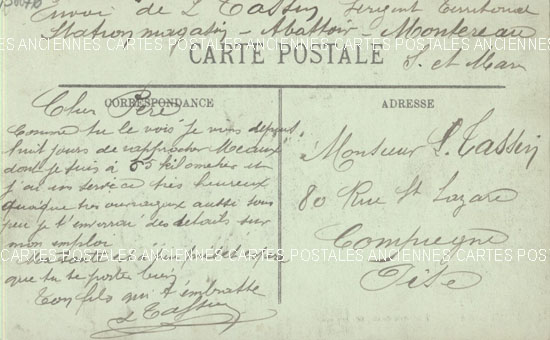 Envoi de L Tassin Sergent Territorial
Station magasin - Abattoir - Montereau
S. et Marn
CARTES POSTALES ANCIENNES CARTES POSTALES ANCIENNES CARTES POSTALES
CARTE POSTALE
CORRESPONDANCE
ADRESSE
Cher Père
Comme tu le vois je suis depuis
huit jours de rapprocher Meaux
dont je suis à 55 kilometres et
j'ai un service très heureux
quoique très ouvrageux aussi sous
peu je t'enverrai des details sur
mon emploi
que tu te portes bien
Ton fils qui t'embrasse
L Tassin
à Monsieur L. Tassin
80 Rue St Lazare
Compiegne
Oise
CARTES POSTALES ANCIENNES CARTES POSTALES ANCIENNES CARTES POSTALES